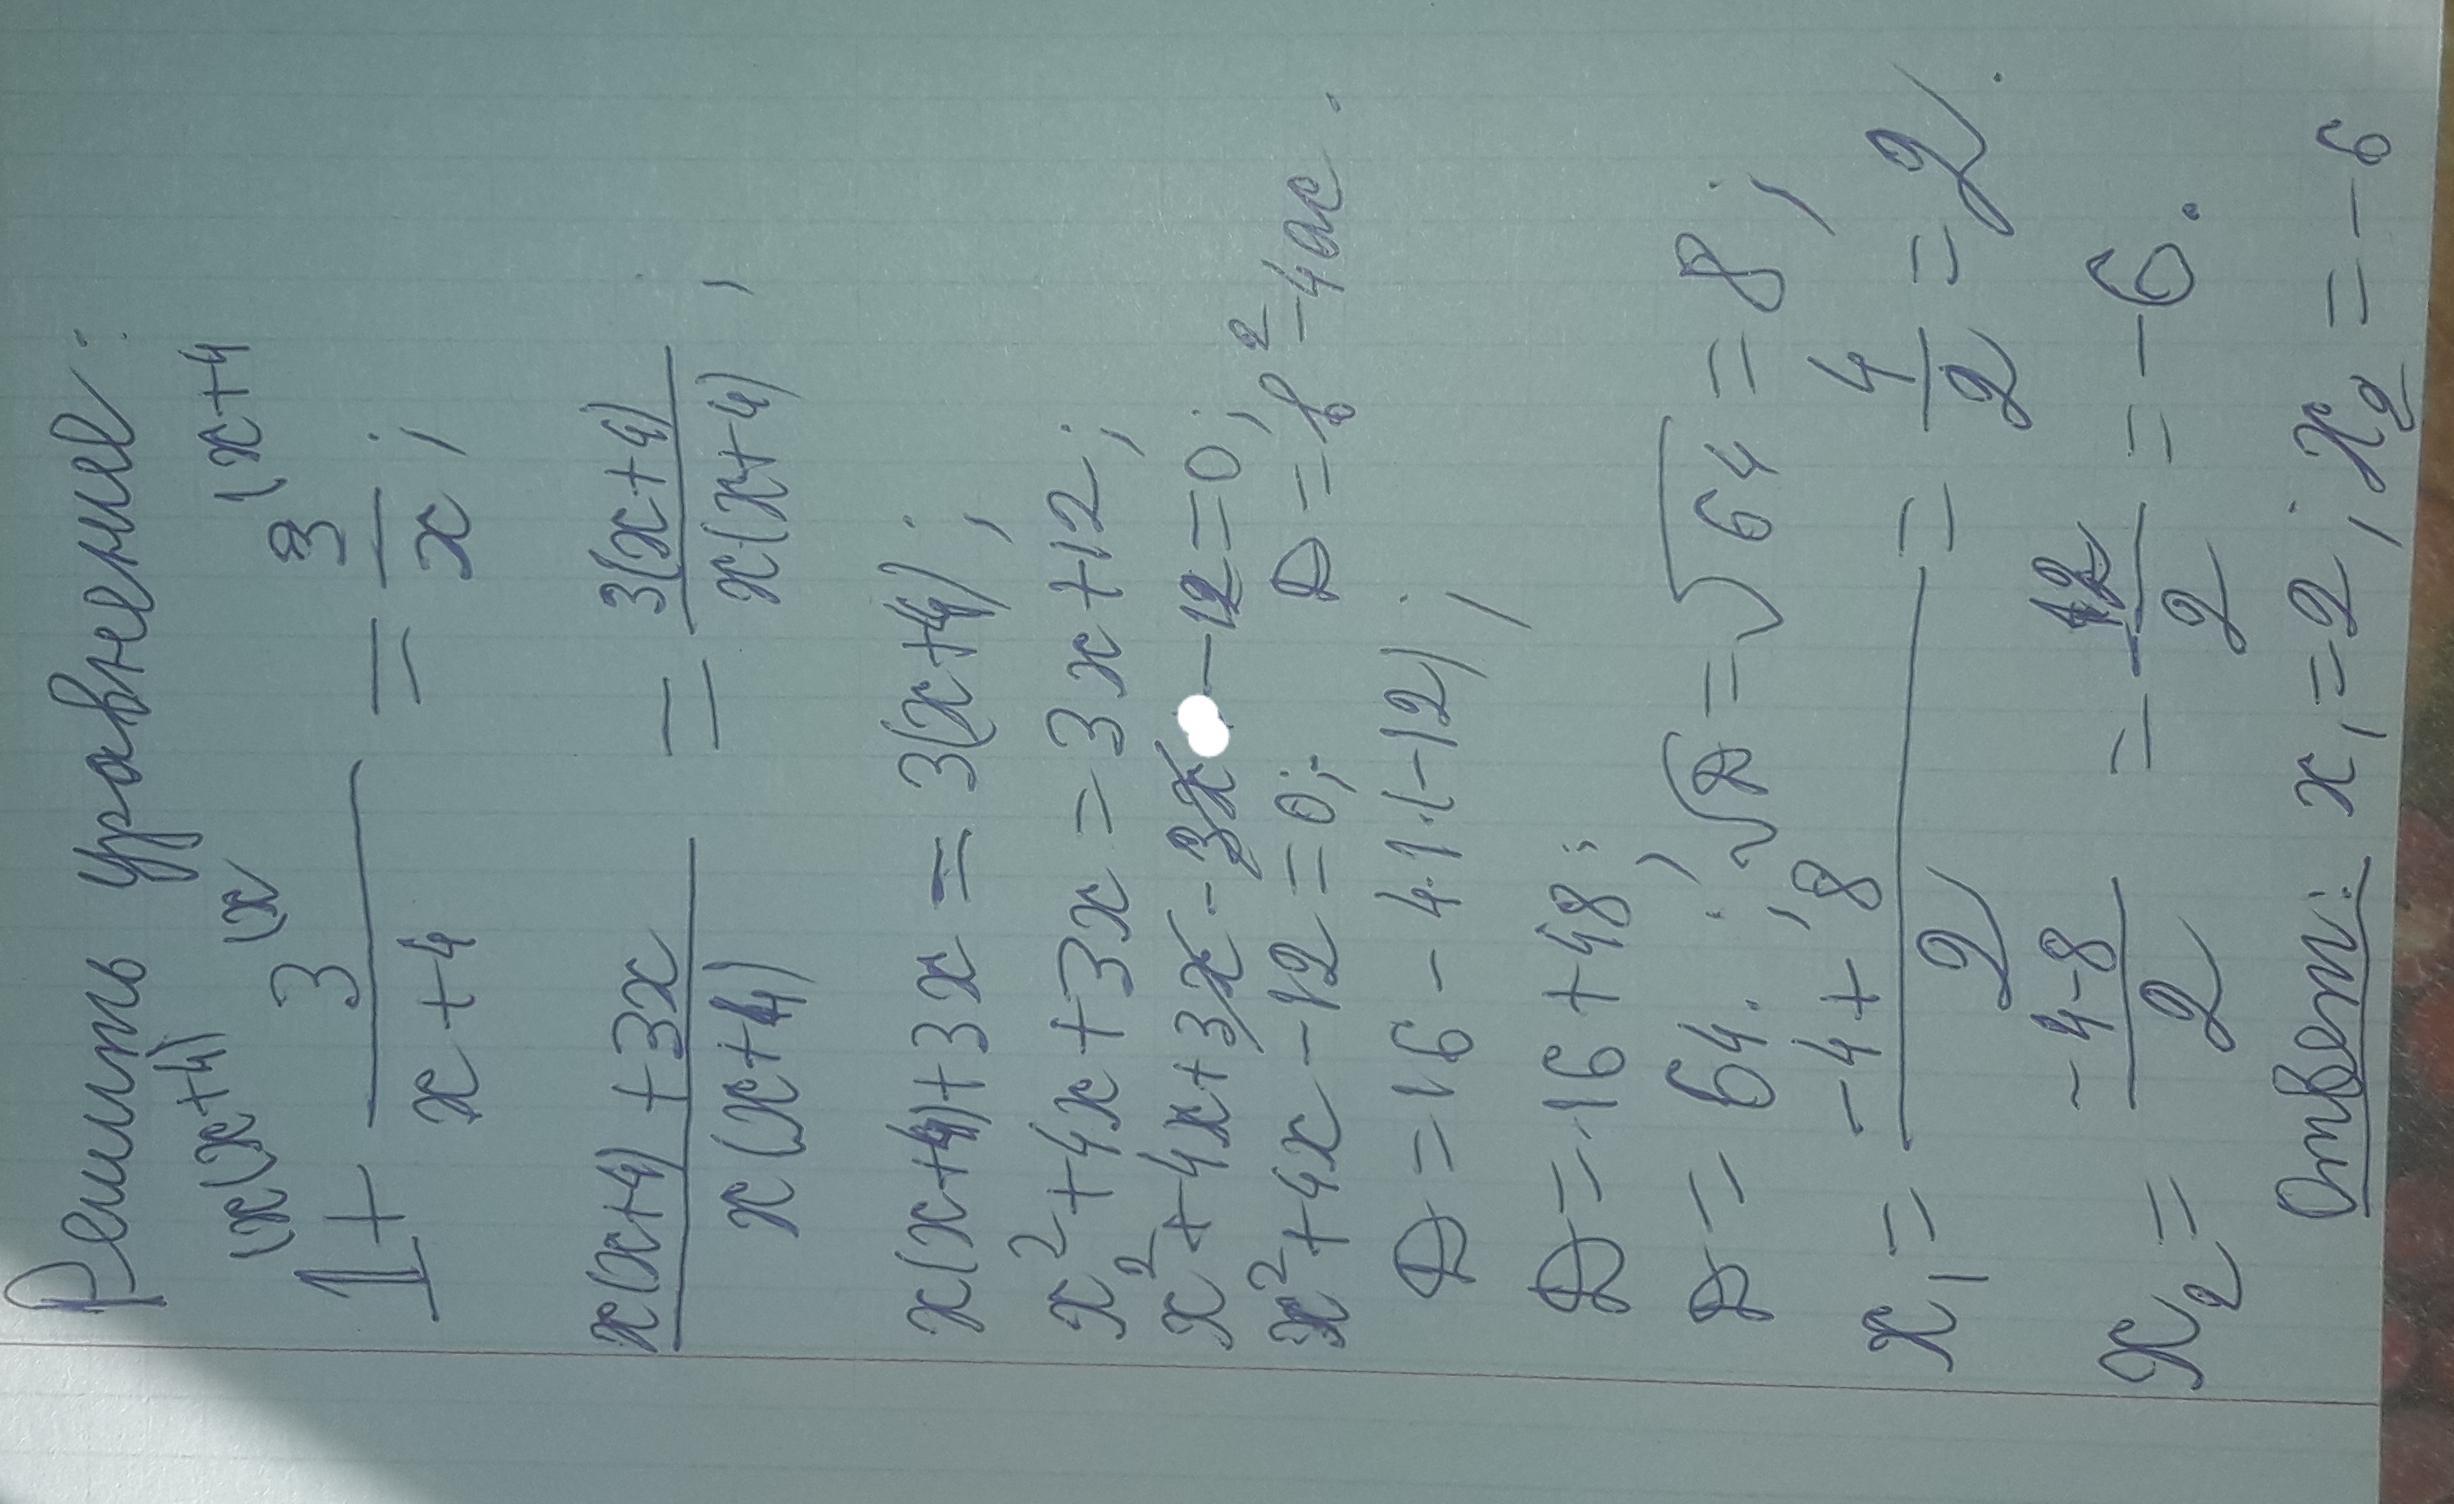 Решить уравнение:
\x(x+4) \x \x+4
1 + 3/(x+4) = 3/x ;
(x(x+4)+3x)/(x(x+4)) = 3(x+4)/(x(x+4)) ;
x(x+4)+3x = 3(x+4) ;
x²+4x+3x = 3x+12 ;
x²+4x+3x-3x-12=0;
x²+4x-12=0; D=b²-4ac.
D=16-4·1·(-12) ;
D=16+48;
D=64. ; √D=√64=8 ;
x₁= (-4+8)/2 = 4/2 = 2.
x₂= (-4-8)/2 = -12/2 = -6.
Ответ: x₁=2; x₂=-6